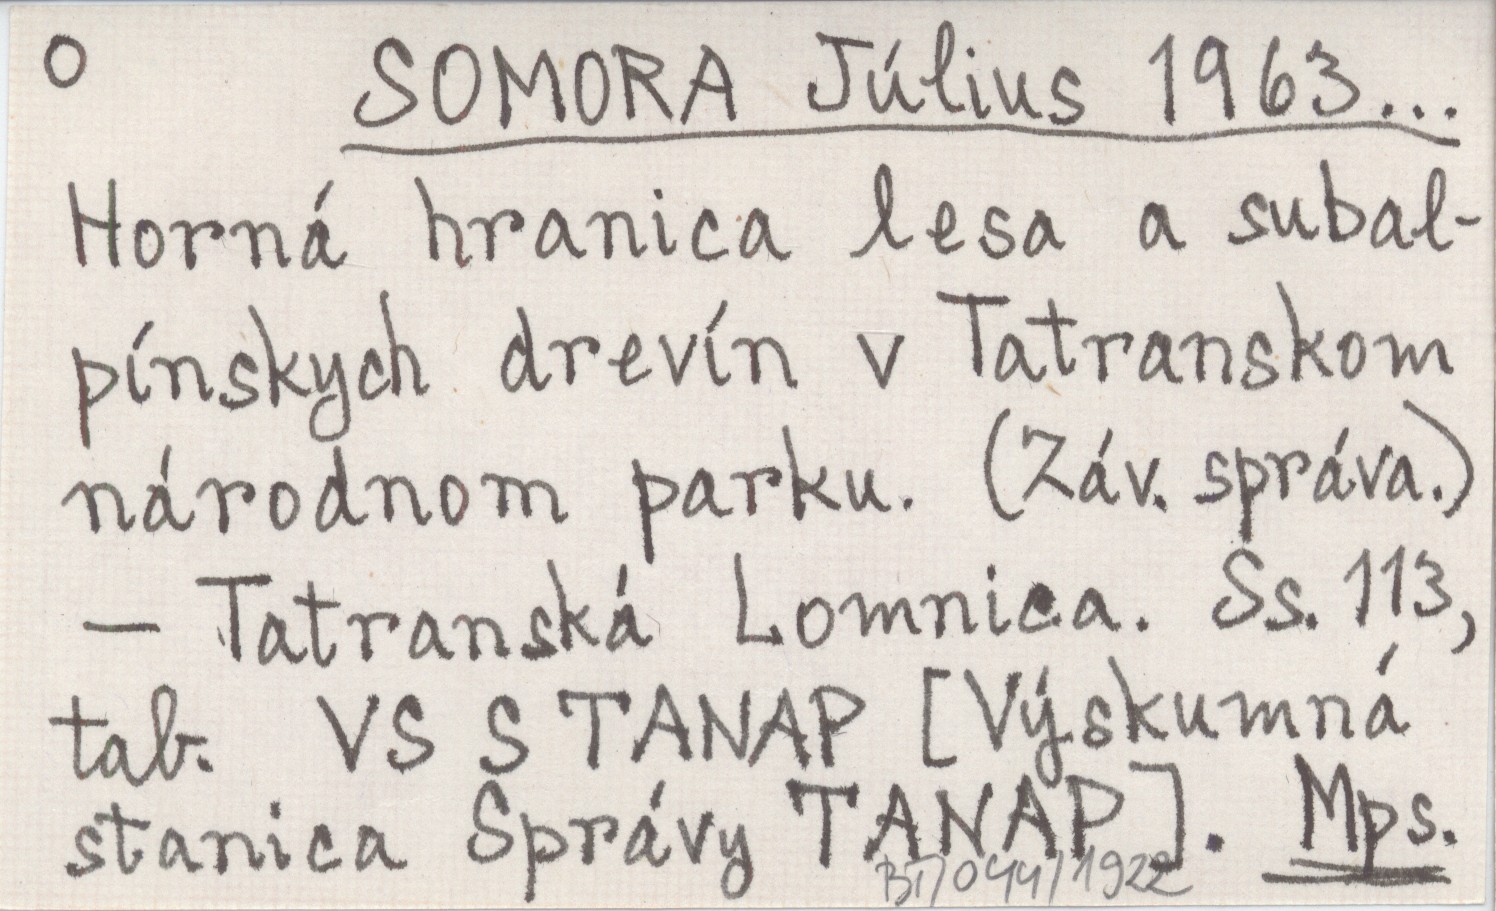 O SOMORA Július 1963...
Horná hranica lesa a subal-
pínskych drevín v Tatranskom
národnom parku. (Záv. správa.)
— Tatranská Lomnica. Ss. 113,
tab. VS S TANAP [Výskumná
stanica Správy TANAP]. Mps.
BI/044/1922